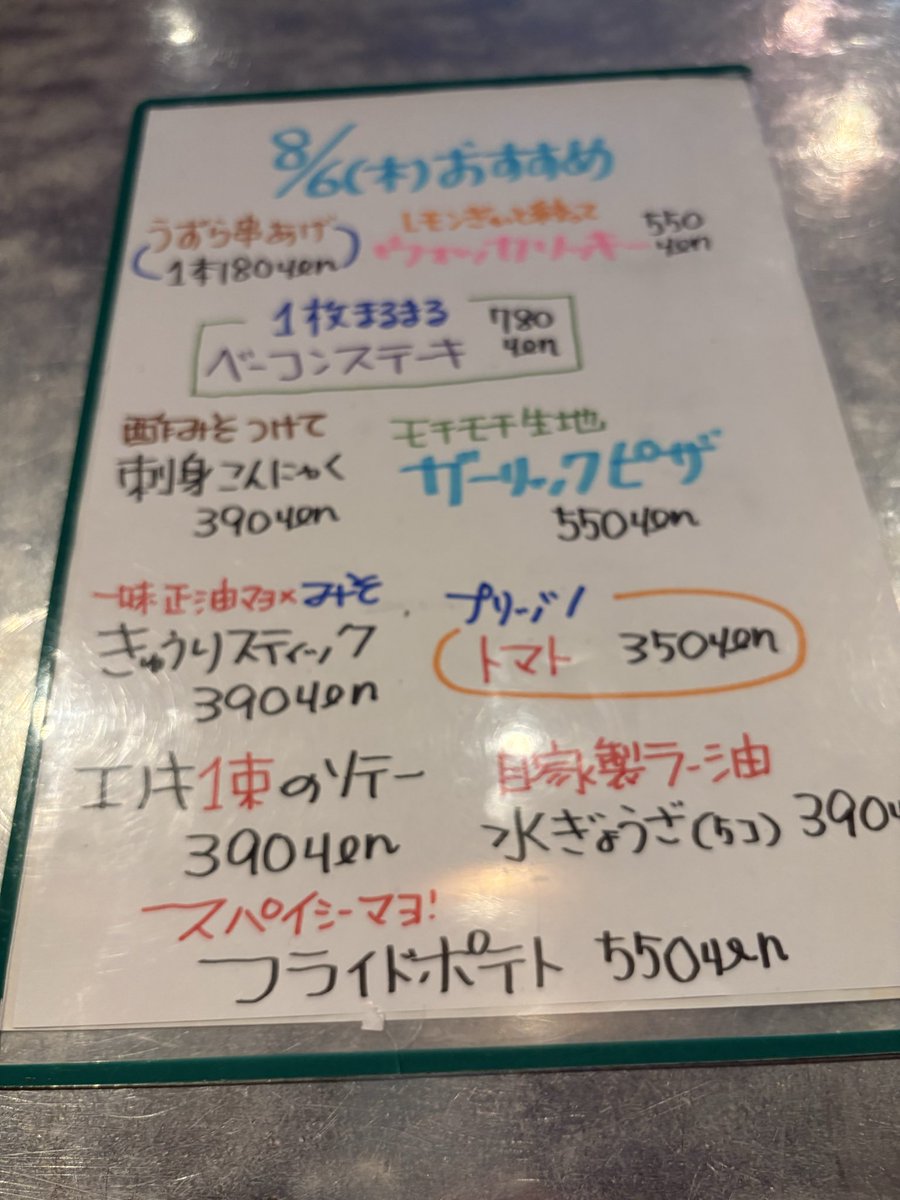 8/6(木)おすすめ
うずら串あげ
(1本180yen)
レモンぎゅっと
ウォッカリッキー 550yen
1枚まるまる
ベーコンステーキ 780yen
酢みそつけて
刺身こんにゃく
390yen
モチモチ生地
ガーリックピザ
550yen
一味正油マヨ×みそ
きゅうりスティック
390yen
プリージソ
トマト 350yen
エノキ1束のソテー
390yen
自家製ラー油
水ぎょうざ(5コ) 390y
スパイシーマヨ!
フライドポテト 550yen